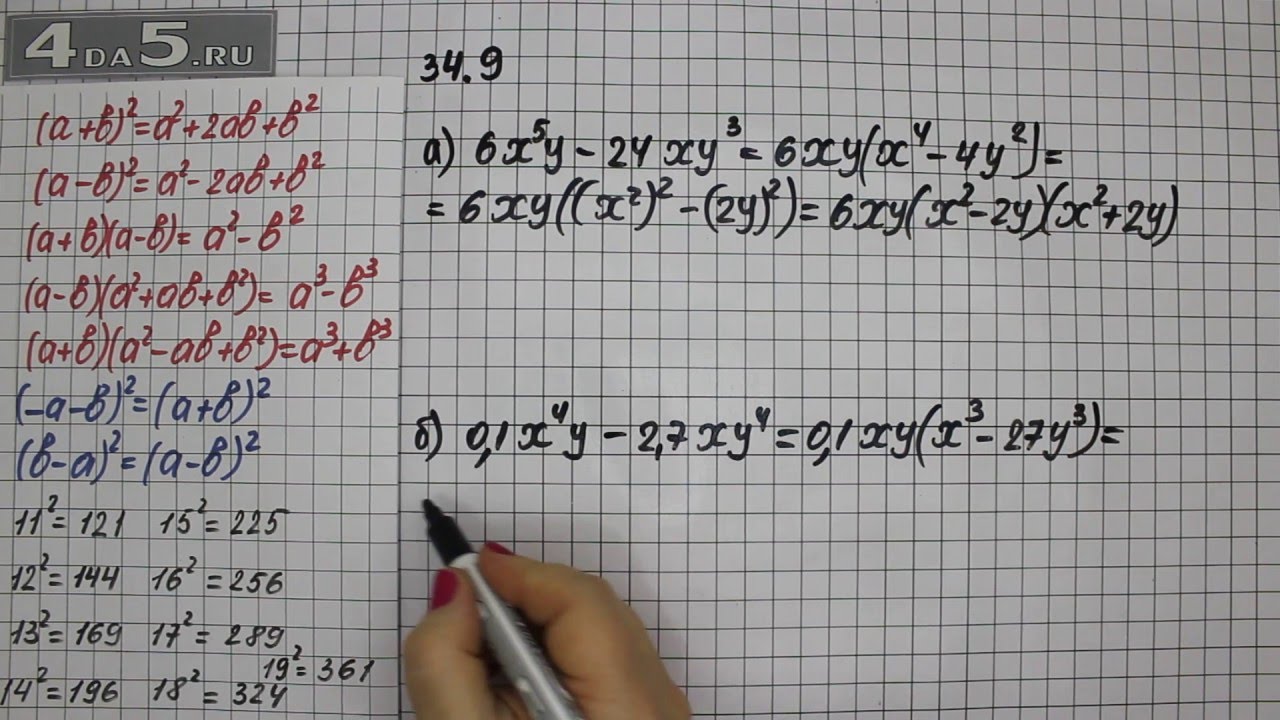 4DA5.RU
(a+b)²=a²+2ab+b²
(a-b)²=a²-2ab+b²
(a+b)(a-b)=a²-b²
(a-b)(a²+ab+b²)=a³-b³
(a+b)(a²-ab+b²)=a³+b³
(-a-b)²=(a+b)²
(b-a)²=(a-b)²
11²=121 15²=225
12²=144 16²=256
13²=169 17²=289
19²=361
14²=196 18²=324
34.9
а) 6x⁵y-24xy³=6xy(x⁴-4y²)=
=6xy((x²)²-(2y)²)=6xy(x²-2y)(x²+2y)
б) 0,1x⁴y-2,7xy⁴=0,1xy(x³-27y³)=